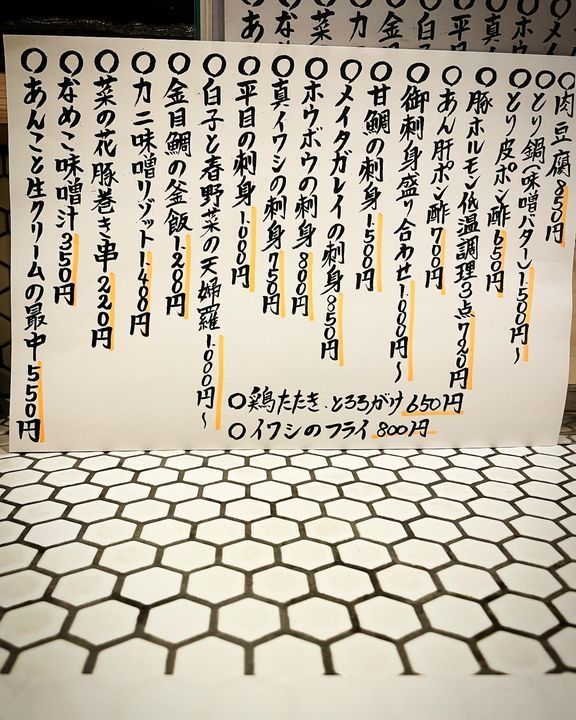 〇肉豆腐 850円
〇とり鍋(味噌バター)1.500円〜
〇とり皮ポン酢 650円
〇豚ホルモン低温調理3点 720円
〇あん肝ポン酢 700円
〇御刺身盛り合わせ 1.000円〜
〇甘鯛の刺身 1.500円
〇メイタガレイの刺身 850円
〇ホウボウの刺身 800円
〇真イワシの刺身 750円
〇平目の刺身 1.000円
〇白子と春野菜の天婦羅 1.000円〜
〇金目鯛の釜飯 1.200円
〇カニ味噌リゾット 1.408円
〇菜の花豚巻き串 220円
〇なめこ味噌汁 350円
〇あんこと生クリームの最中 550円
〇鶏たたき.とろろがけ 650円
〇イワシのフライ 800円